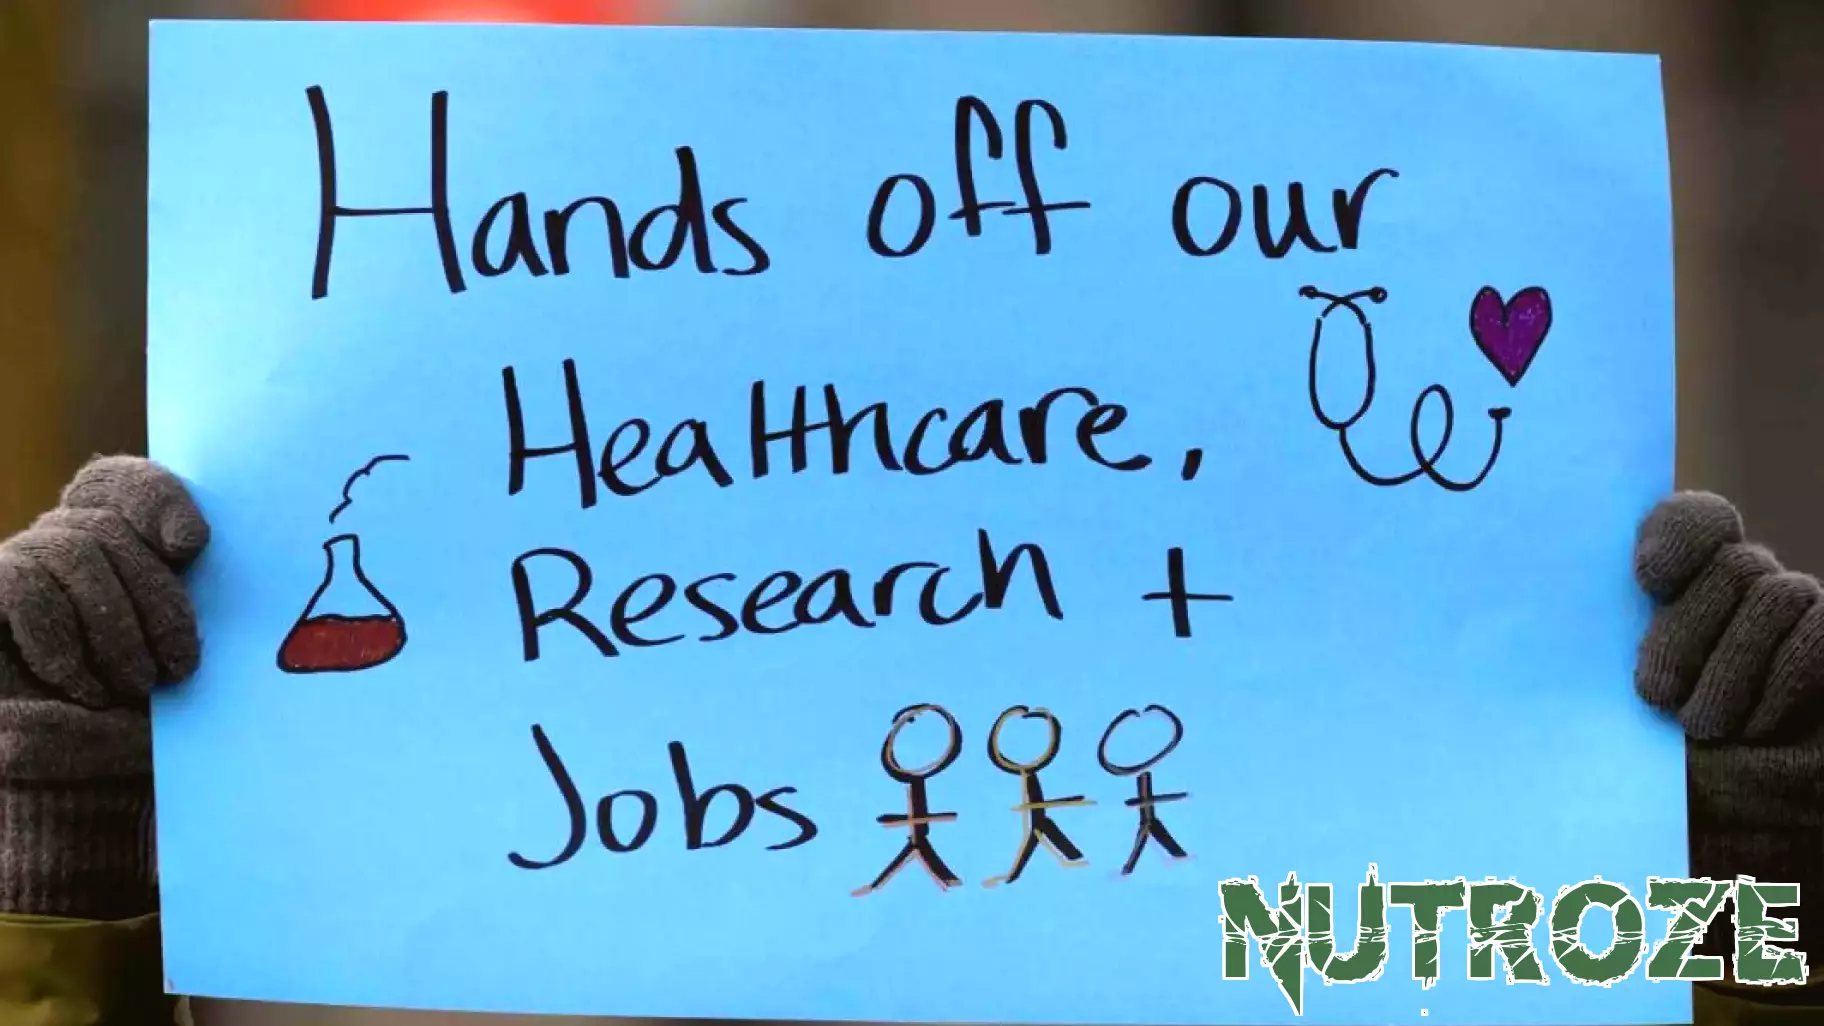 Hands off our
Healthcare,
Research +
Jobs
NUTROZE